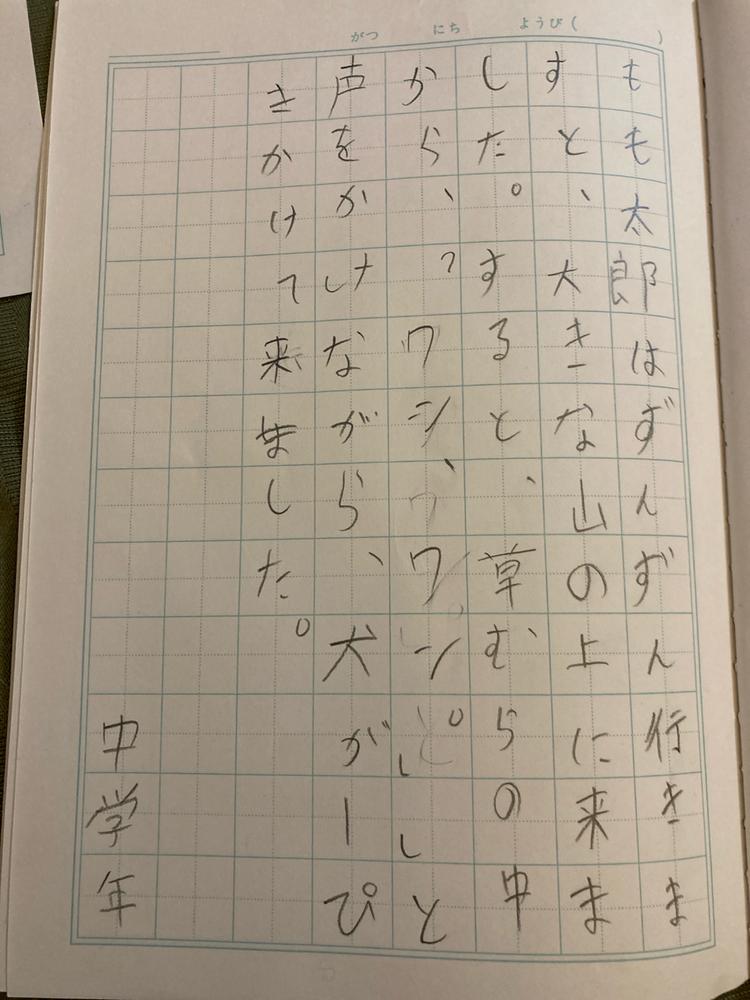 がつ　にち　ようび(　)
もも太郎はずんずん行きま
すと、大きな山の上に来ま
した。すると、草むらの中
から、「ワン、ワン。」と
声をかけながら、犬が一ぴ
きかけて来ました。
中学年